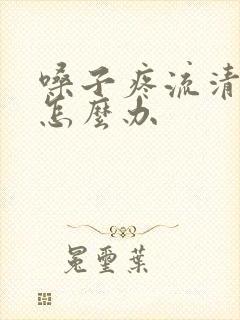 嗓子疼流清
怎麼办
冕璽葉